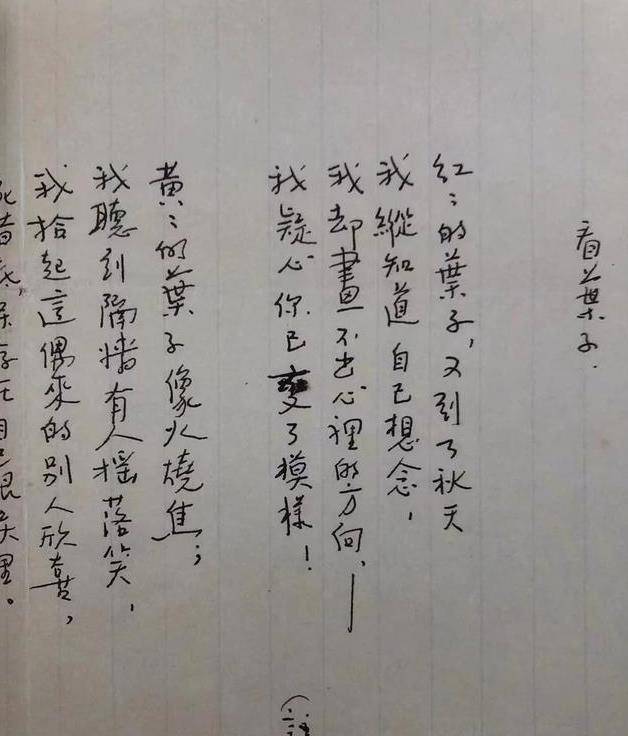 看葉子.
紅〻的葉子，又到了秋天
我縱知道自己想念，
我却畫不出心裡的方向，—
我疑心你已變了模樣！
黃〻的葉子像火燒焦；
我聽到隔墻有人搖落笑，
我拾起這偶來的別人欣喜，
自己眼光裡。